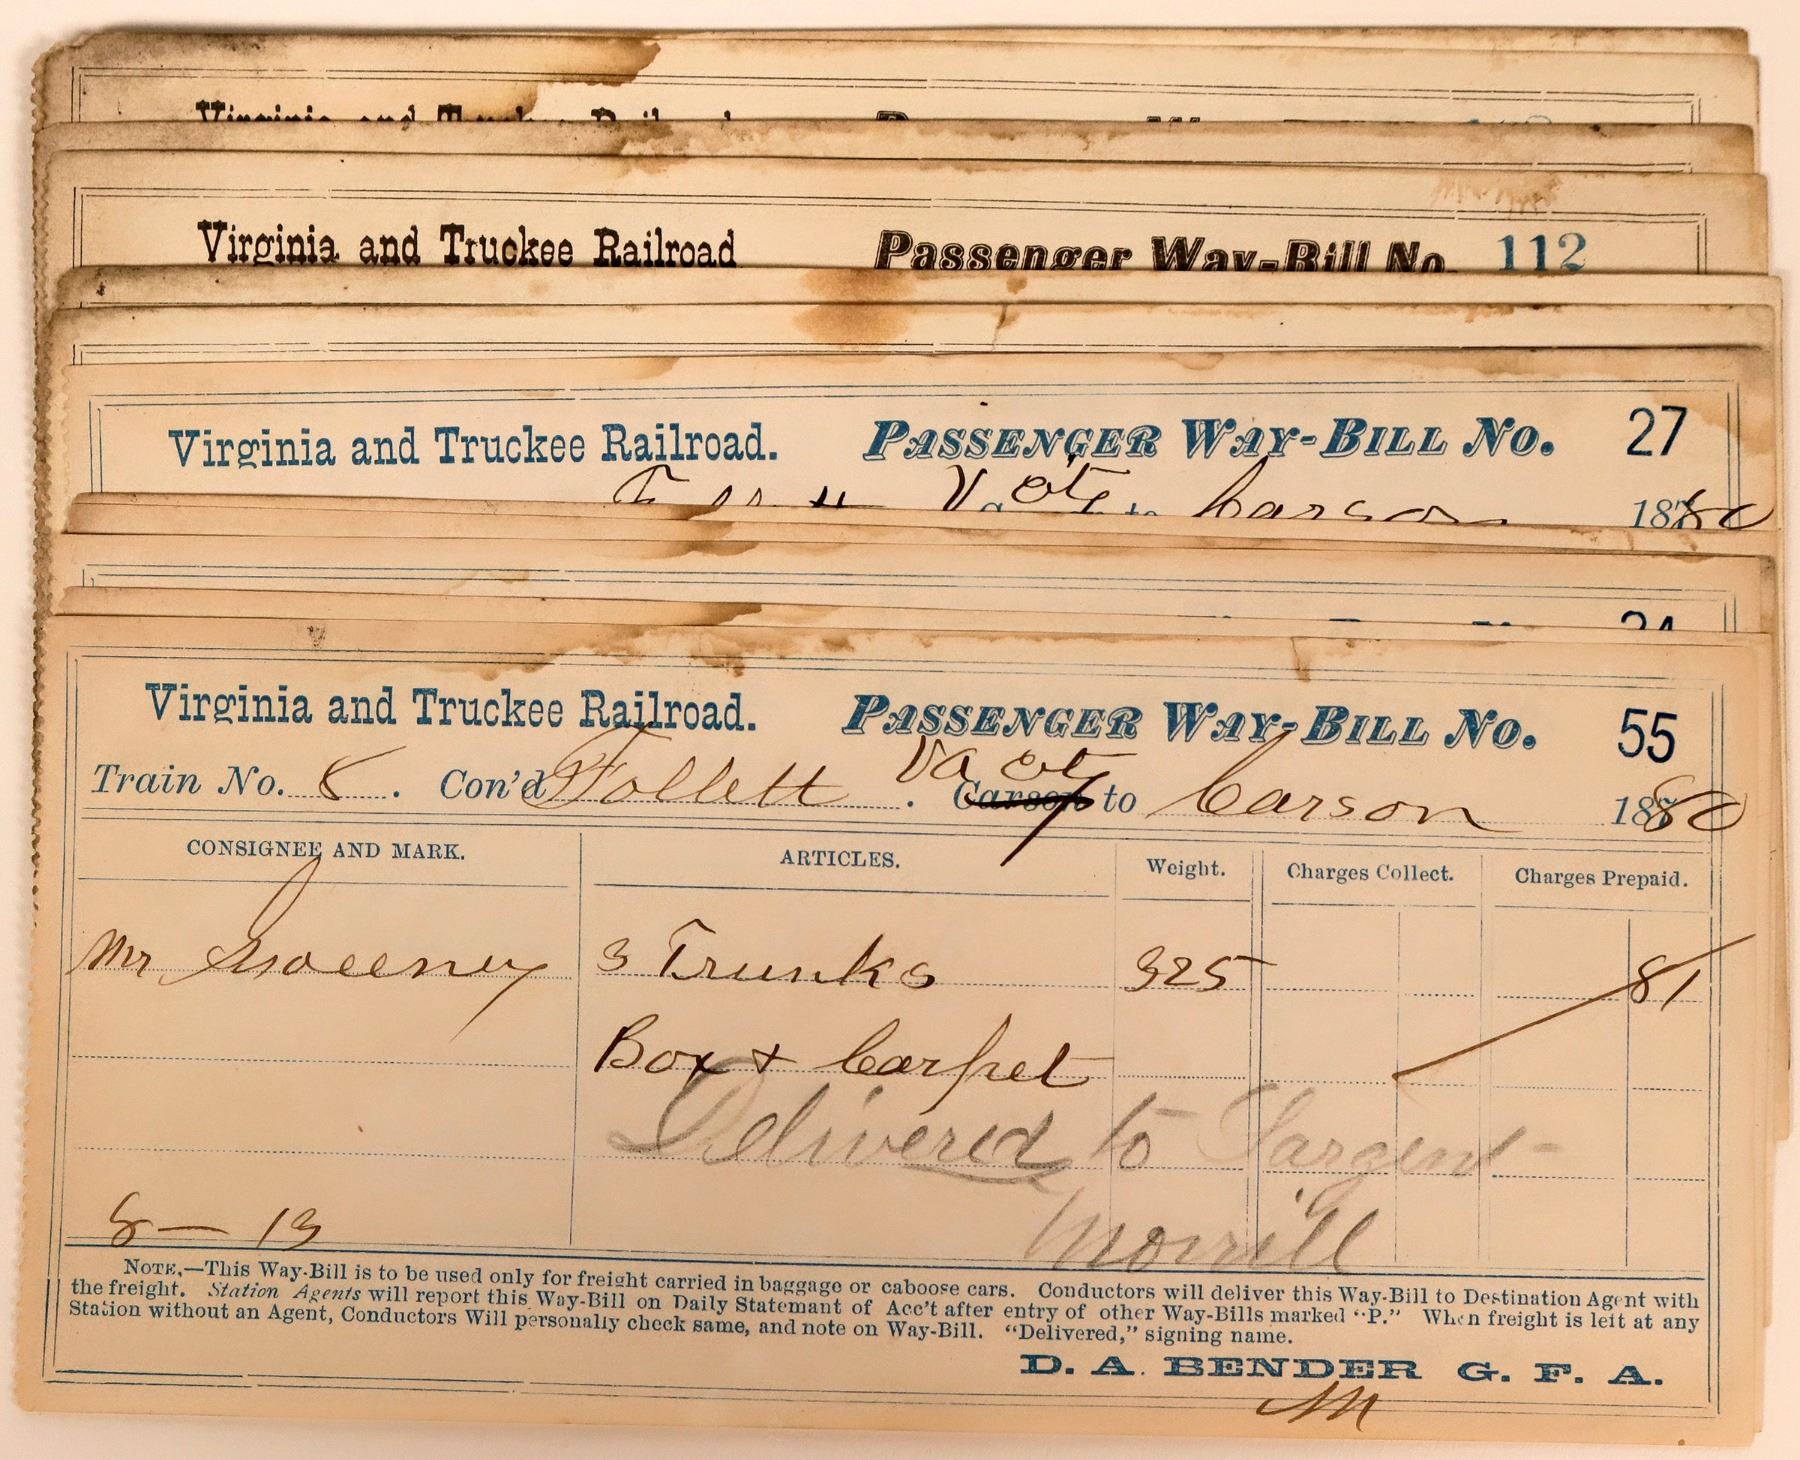 Virginia and Truckee Railroad
Virginia and Truckee Railroad Passenger Way-Bill No. 112
Virginia and Truckee Railroad. PASSENGER WAY-BILL No. 27
Va City to Carson 1880
Virginia and Truckee Railroad. PASSENGER WAY-BILL No. 55
Train No. 8. Con'd Follett. Va City Carson to Carson 1880
CONSIGNEE AND MARK. ARTICLES. Weight. Charges Collect. Charges Prepaid.
Mr Sweeney 3 Trunks 325 81
Box & Carpet
Delivered to Sargent-
Morrill
8 — 13
NOTE,—This Way-Bill is to be used only for freight carried in baggage or caboose cars. Conductors will deliver this Way-Bill to Destination Agent with
the freight. Station Agents will report this Way-Bill on Daily Statemant of Acc't after entry of other Way-Bills marked "P." When freight is left at any
Station without an Agent, Conductors Will personally check same, and note on Way-Bill. "Delivered," signing name.
D. A. BENDER G. F. A.
M